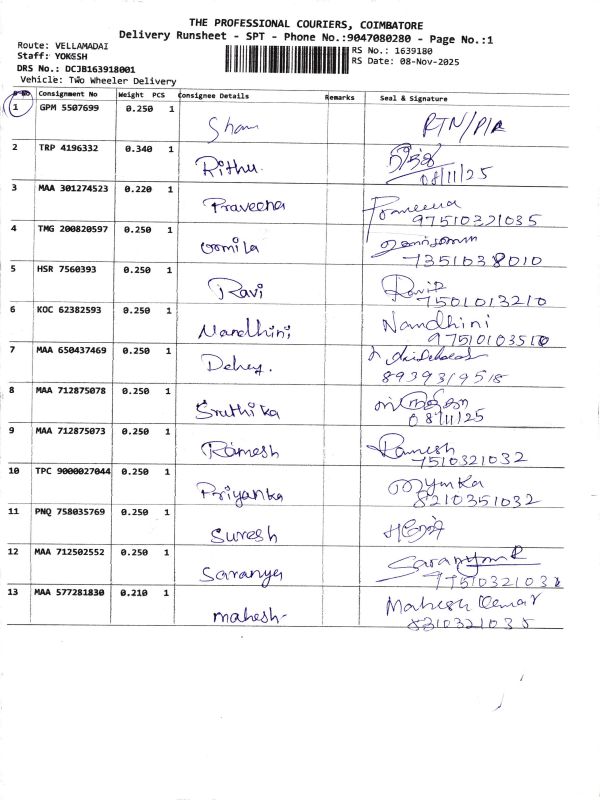 THE PROFESSIONAL COURIERS, COIMBATORE
Delivery Runsheet - SPT - Phone No.:9047080280 - Page No.:1
Route: VELLAMADAI
Staff: YOKESH
DRS No.: DCJB163918001
Vehicle: Two Wheeler Delivery
RS No.: 1639180
RS Date: 08-Nov-2025
Consignment No Weight PCS Consignee Details Remarks Seal & Signature
1 GPM 5507699 0.250 1 Sham RTN/
2 TRP 4196332 0.340 1 Rithu.
08/11/25
3 MAA 301274523 0.220 1 Praveena
97510321035
4 TMG 200820597 0.250 1 Urmila
7351038010
5 HSR 7560393 0.250 1 Ravi
7501013210
6 KOC 62382593 0.250 1 Nandhini Nandhini
7 MAA 650437469 0.250 1
8939319518
8 MAA 712875078 0.250 1 Sruthika
08/11/25
9 MAA 712875073 0.250 1 Ramesh Ramesh
7510321032
10 TPC 9000027044 0.250 1 Priyanka
8210351032
11 PNQ 758035769 0.250 1 Suresh சுரேஷ்
12 MAA 712502552 0.250 1 Saranya
13 MAA 577281830 0.210 1 mahesh Mahesh Kumar
8310321035